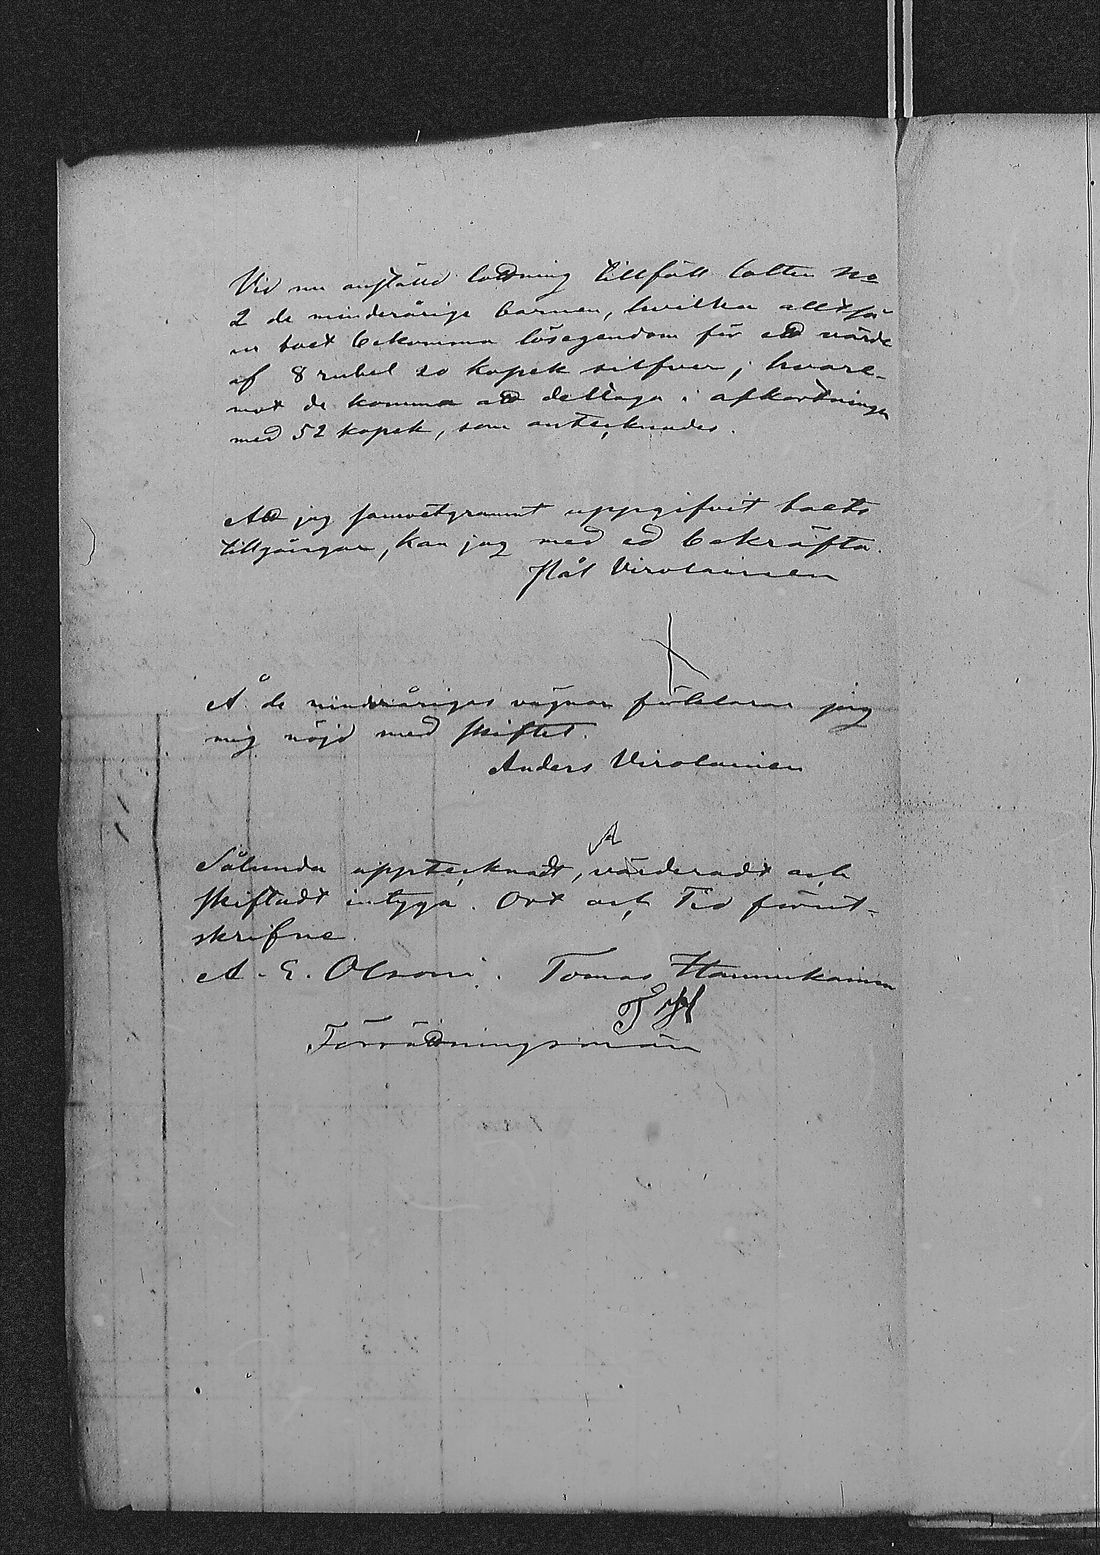 Vid nu anstäld lottning tillföll lotten No
2 de minderårige barnen, hvilka alltså
ur boet bekomma lösegendom för ett värde
af 8 rubel 20 kopek silfver; hvare-
mot de komma att deltaga i afkortningen
med 52 kopek, som antecknades.
Att jag samvetgrannt uppgifvit boets
tillgångar, kan jag med ed bekräfta.
Pål Virolainen
Å de minderåriges vägnar förklarar jag
mig nöjd med skiftet.
Anders Virolainen
A
Sålunda upptecknadt, värderadt och
skiftadt intyga. Ort och Tid förut-
skrifne.
A. E. Olsoni. Tomas Hannukainen
T H
Förrättningsmän